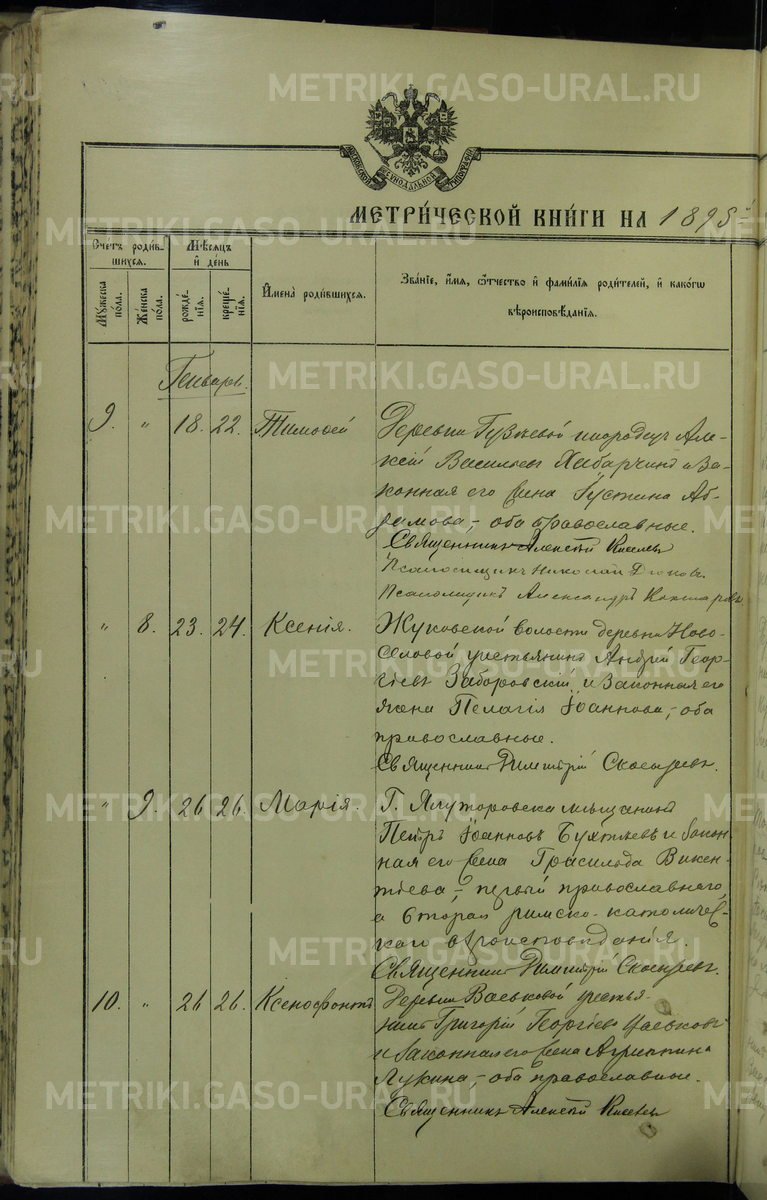 METRIKI.GASO-URAL.RU
МОСКОВСКОЙ СѴНОДАЛЬНОЙ ТИПОГРАФІИ
МЕТРИ́ЧЕСКОЙ КНИ́ГИ НА 1895й
Сче́тъ роди́вшихся.
Мꙋ́жеска по́ла.
Же́нска по́ла.
Мѣ́сяцъ и҆ де́нь
рожде́нїя.
креще́нїя.
И҆мена̀ роди́вшихся.
Зва́нїе, и҆́мя, ѻ҆́тчество и҆ фами́лїя роди́телей, и҆ како́гѡ вѣроисповѣ́данїя.
Генварь.
9. " 18. 22. Тимоѳей
Деревни Гужевой инородецъ Але-
ксій Васильевъ Хабарчинъ и за-
конная его жена Іустина Аб-
рамова, – оба православные.
Священникъ Алексій Киселевъ
Псаломщикъ Николай
Псаломщикъ Александръ
" 8. 23. 24. Ксенія.
Жуковской волости деревни Ново-
селовой крестьянинъ Андрей Геор-
гіевъ Заборовскій и законная его
жена Пелагія Іоаннова, – оба
православные.
Священникъ Димитрій Скосыревъ.
" 9. 26 26. Марія.
Г. Ялуторовска мѣщанинъ
Петръ Іоанновъ и закон-
ная его жена Викен-
тіева, – первый православнаго,
а вторая римско-католичес-
каго вѣроисповѣданія.
Священникъ Димитрій Скосыревъ.
10. " 26 26. Ксенофонтъ
Деревни Васьковой крестья-
нинъ Григорій Георгіевъ Васьковъ
и законная его жена Агриппина
Лукина, – оба православные.
Священникъ Алексій Киселевъ